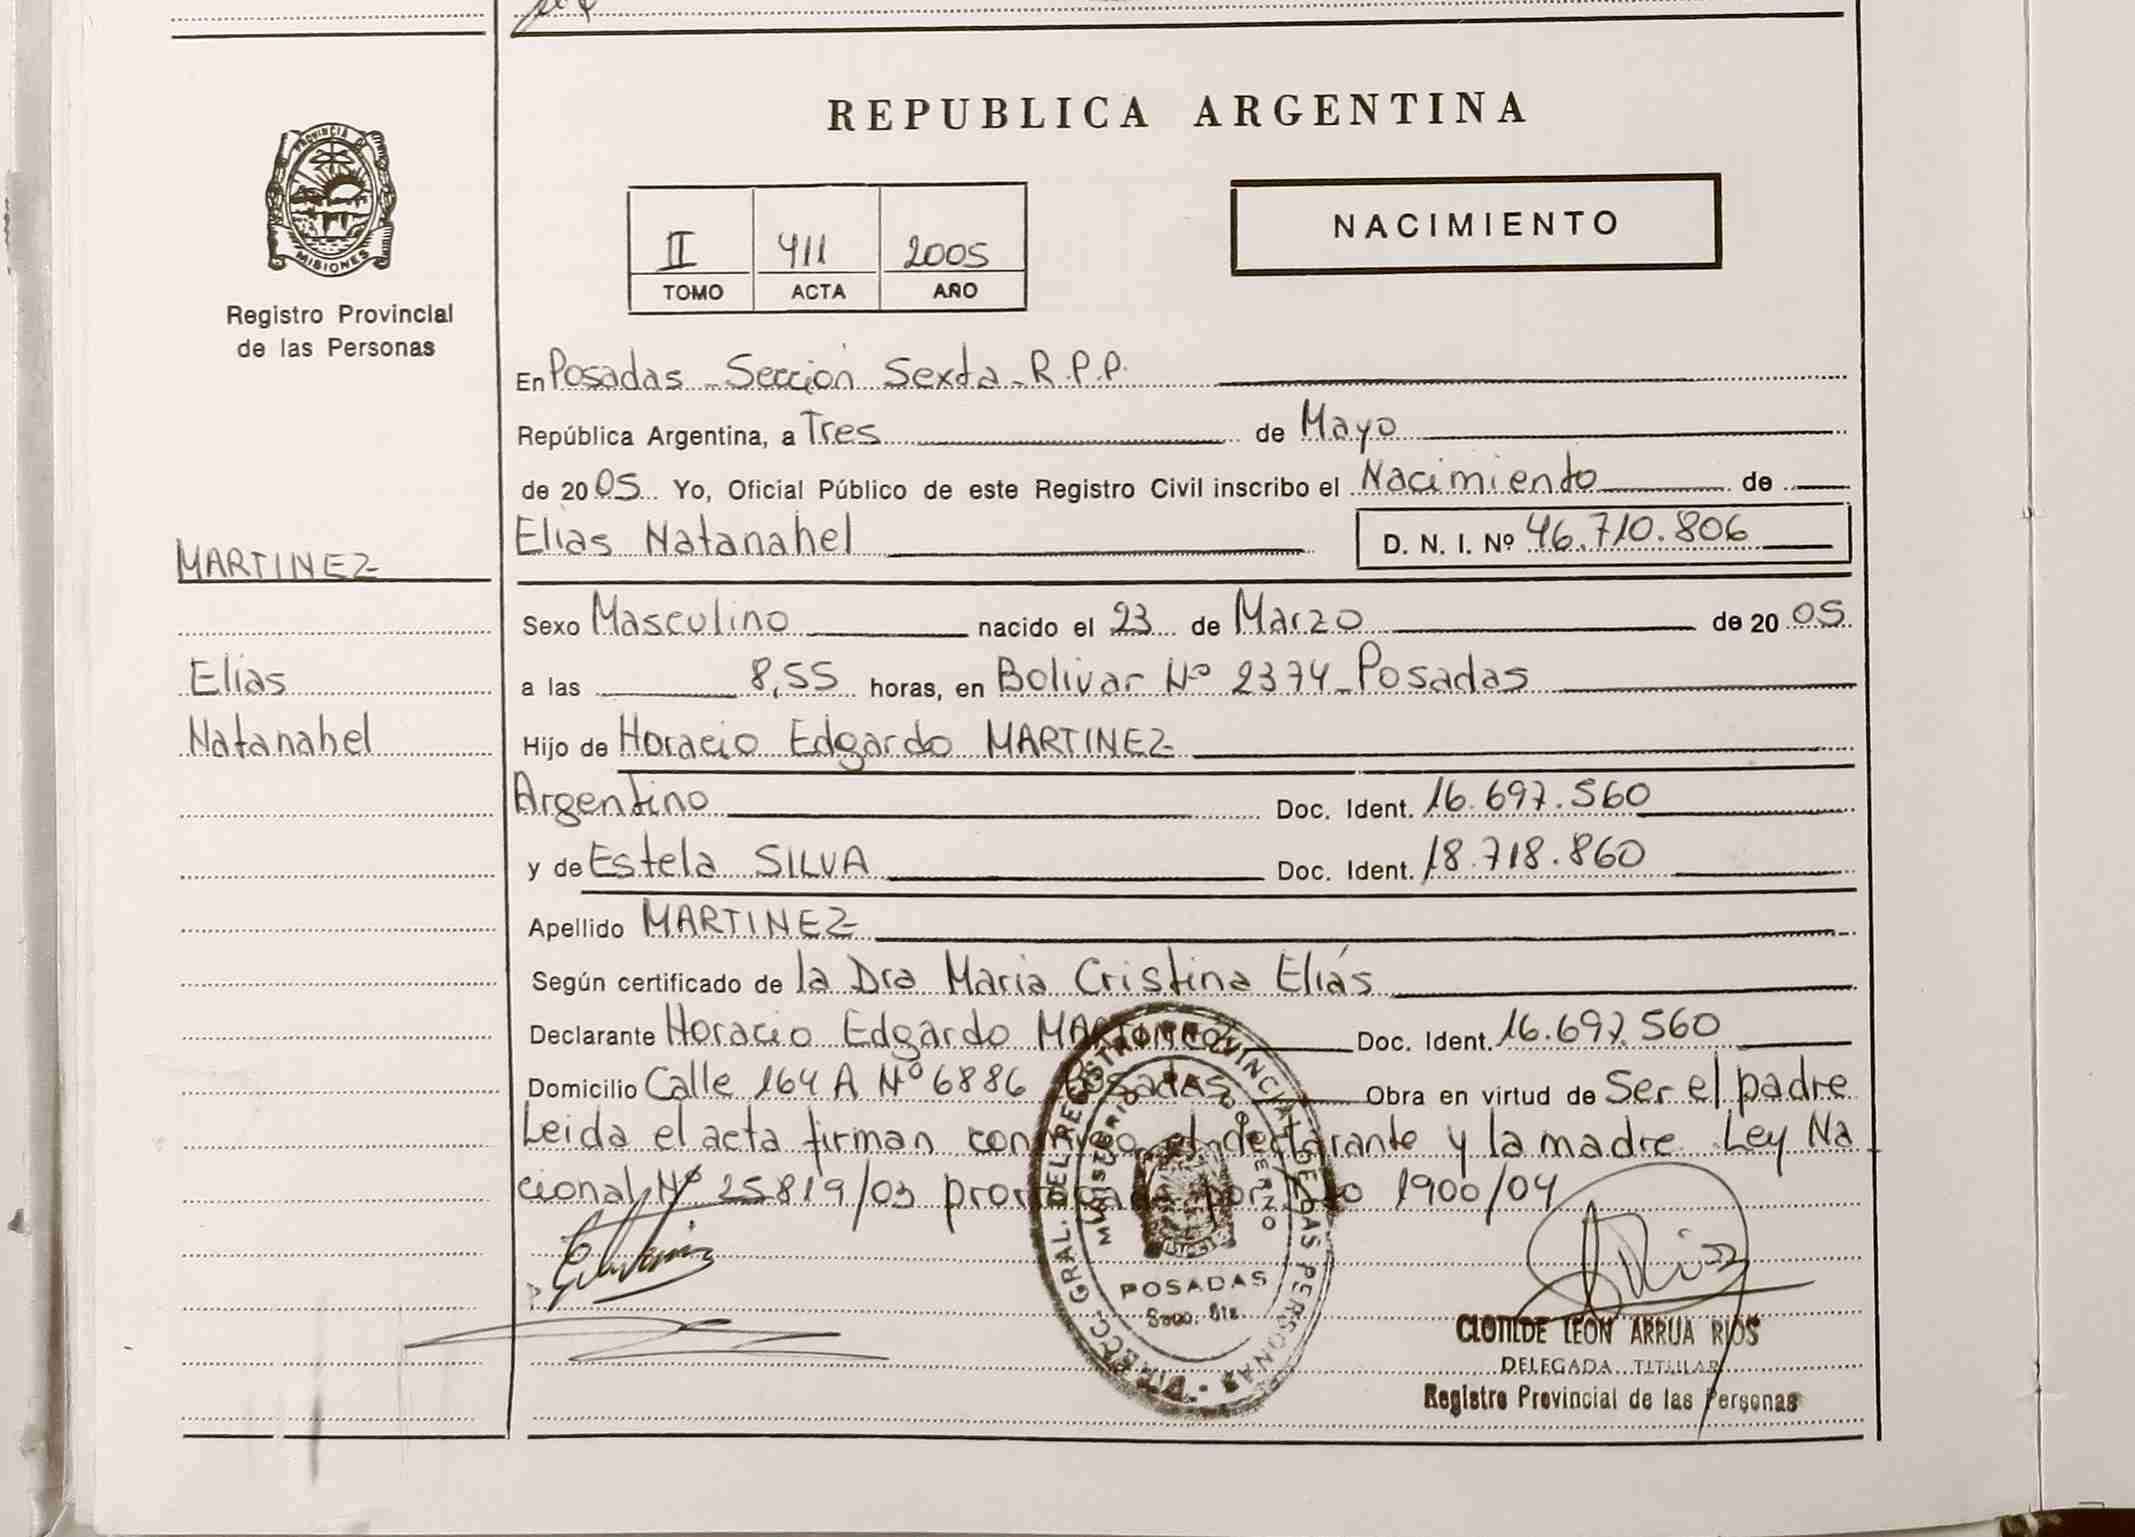 REPUBLICA ARGENTINA
PROVINCIA DE
MISIONES
Registro Provincial
de las Personas
NACIMIENTO
II 411 2005
TOMO ACTA AÑO
En Posadas - Sección Sexta - R.P.P.
República Argentina, a Tres de Mayo
de 2005 Yo, Oficial Público de este Registro Civil inscribo el Nacimiento de
Elias Natanahel D. N. I. Nº 46.710.806
MARTINEZ
Elias
Natanahel
Sexo Masculino nacido el 23 de Marzo de 2005
a las 8,55 horas, en Bolivar Nº 2374 - Posadas
Hijo de Horacio Edgardo MARTINEZ
Argentino Doc. Ident. 16.697.560
y de Estela SILVA Doc. Ident. 18.718.860
Apellido MARTINEZ
Según certificado de la Dra Maria Cristina Eliás
Declarante Horacio Edgardo MARTINEZ Doc. Ident. 16.697.560
Domicilio Calle 164 A Nº 6886 Posadas Obra en virtud de Ser el padre
Leida el acta firman conmigo el declarante y la madre. Ley Na
cional Nº 25819/03 por 1900/04
DIRECC. GRAL. DEL REGISTRO PROVINCIAL DE LAS PERSONAS
MINISTERIO DE GOBIERNO
POSADAS
Secc. 6ta.
CLOTILDE LEON ARRUA RIOS
DELEGADA TITULAR
Registro Provincial de las Personas